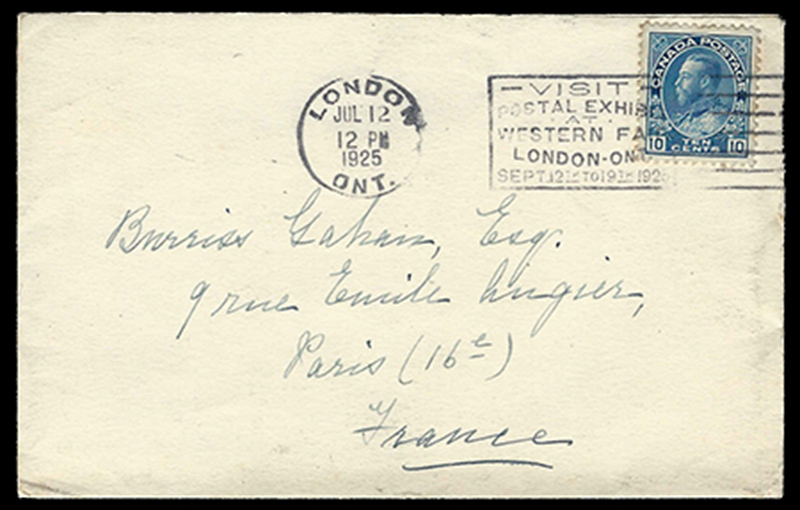 LONDON
JUL 12
12 PM
1925
ONT.
—VISIT
POSTAL EXHIB
AT
WESTERN FA
LONDON-ON
SEPT. 12TH TO 19TH 1925
CANADA POSTAGE
10 TEN CENTS 10
Burriss Gahan, Esq.
9 rue Emile Augier,
Paris (16e)
France